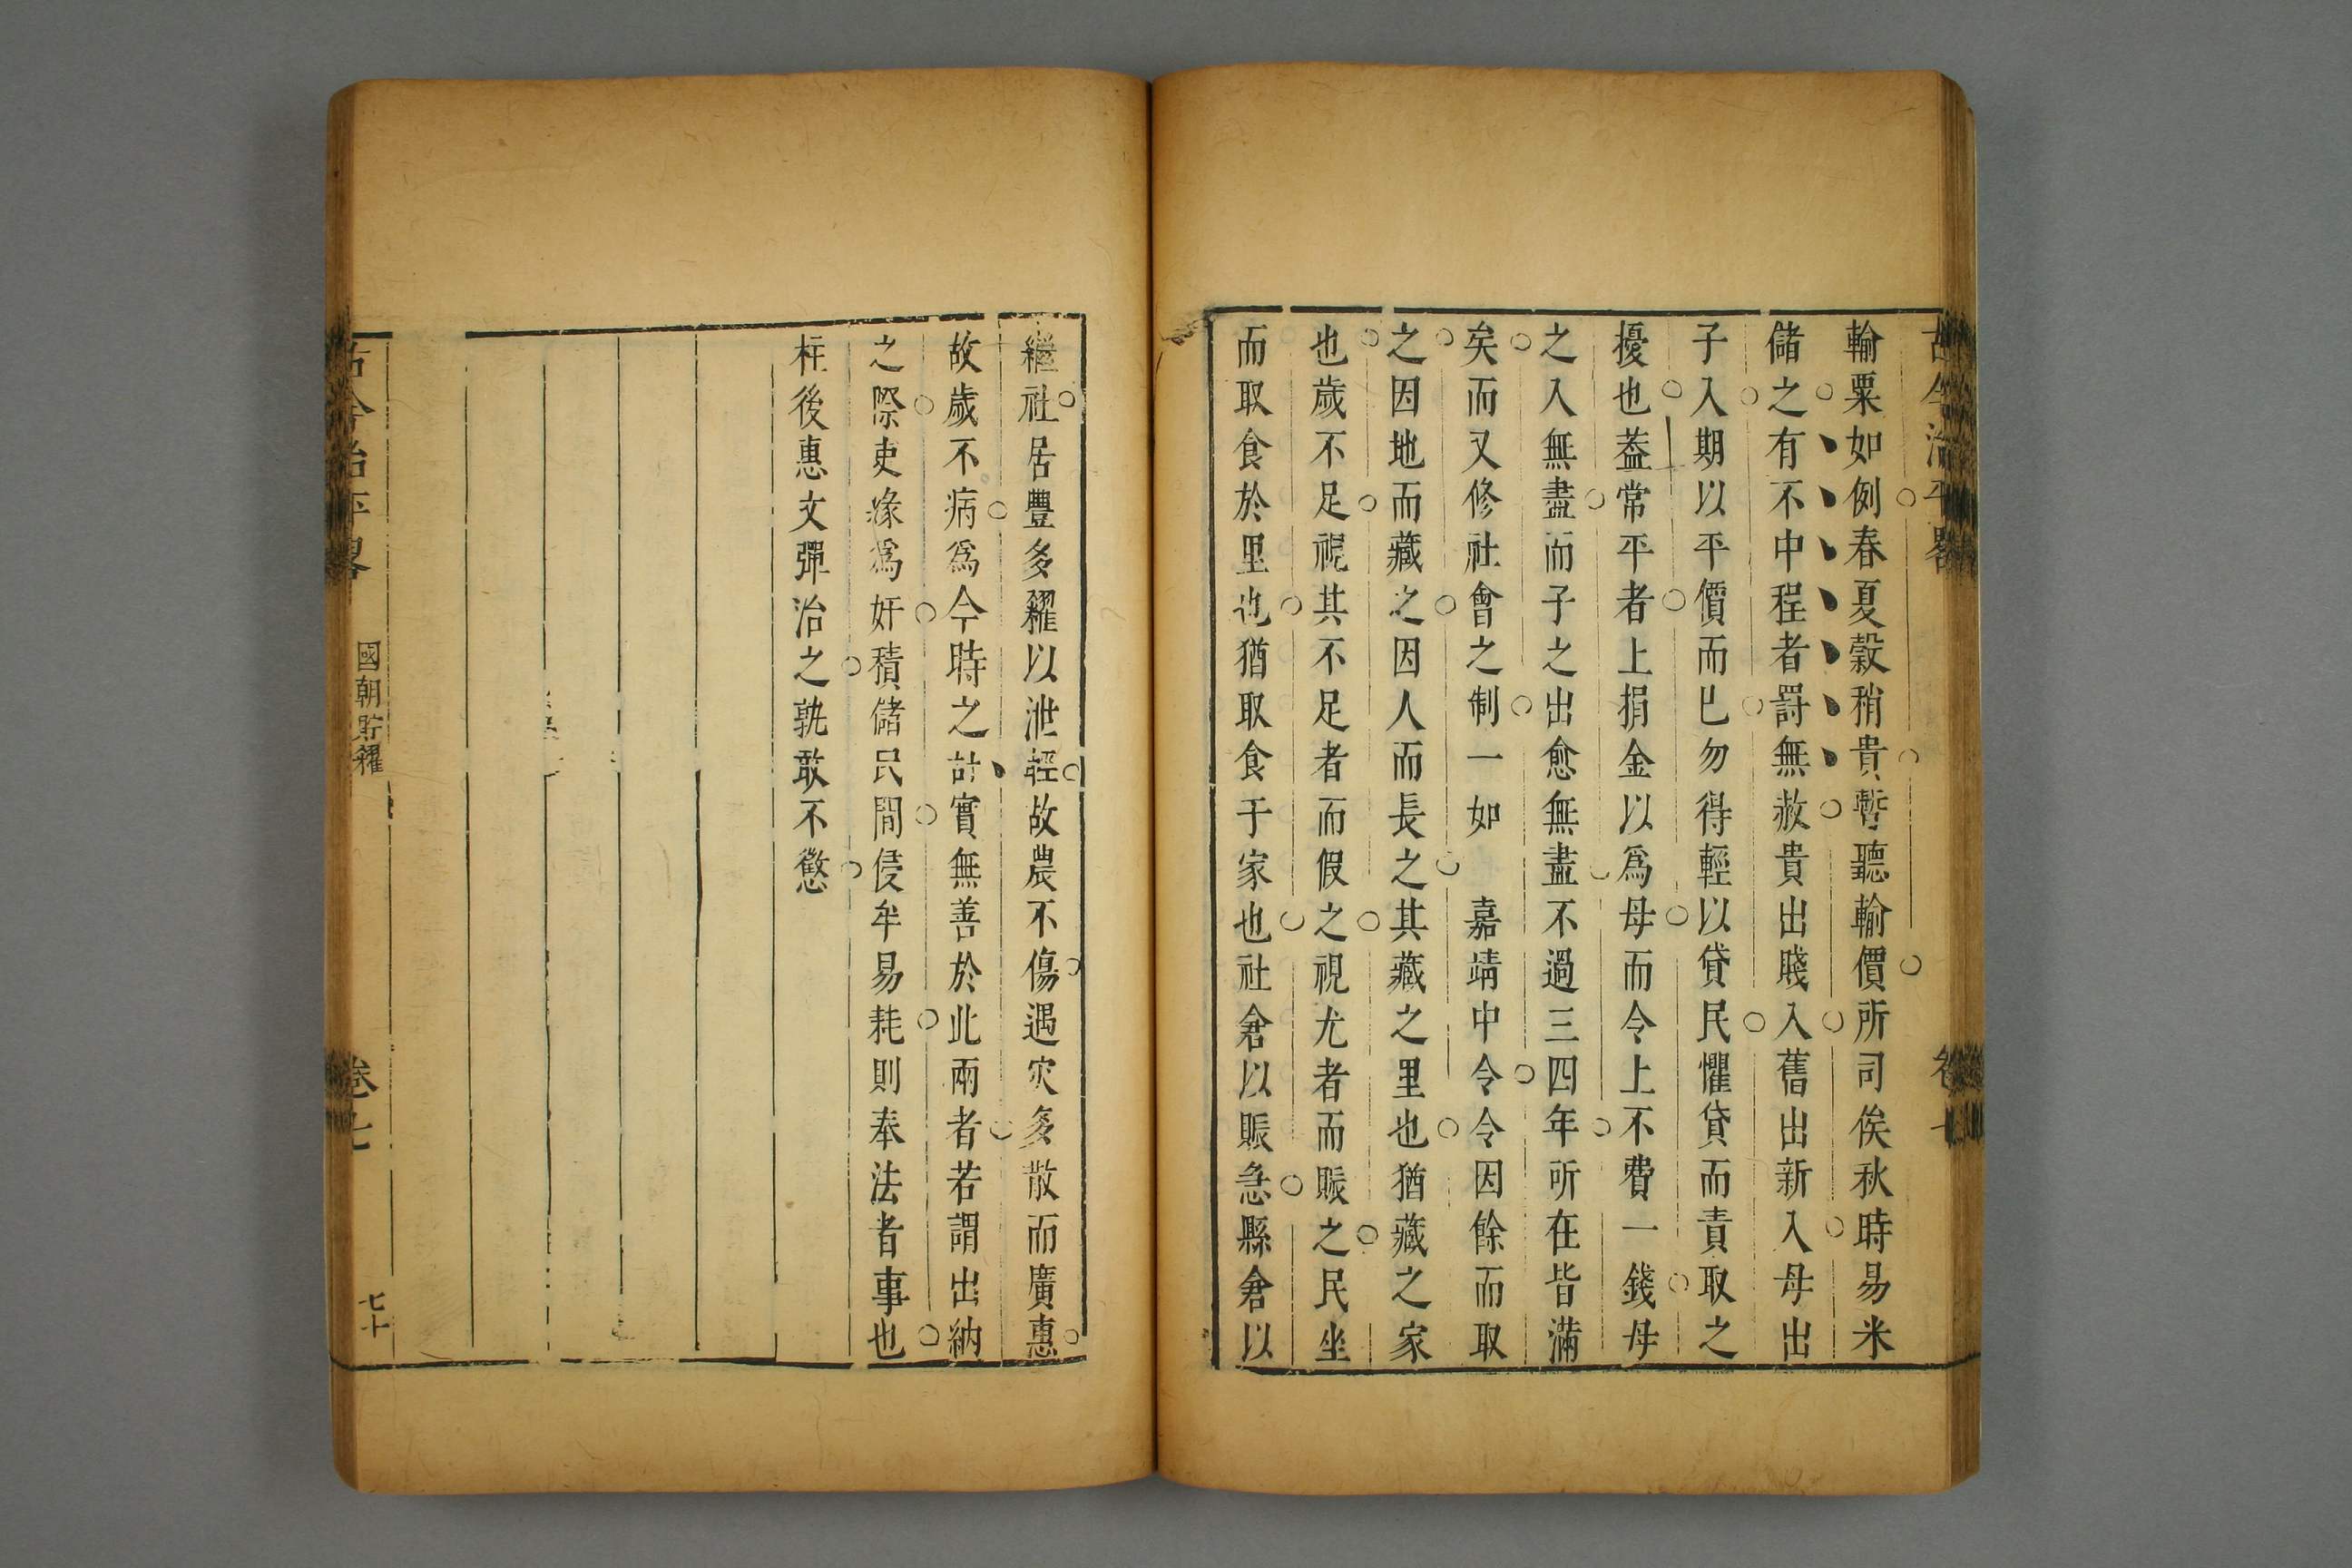 古今治平畧
卷七
輸粟如例春夏穀稍貴暫聽輸價所司俟秋時易米
儲之有不中程者罸無赦貴出賤入舊出新入母出
子入期以平價而已勿得輕以貸民懼貸而責取之
擾也葢常平者上捐金以爲母而令上不費一錢母
之入無盡而子之出愈無盡不過三四年所在皆滿
矣而又修社會之制一如　嘉靖中令令因餘而取
之因地而藏之因人而長之其藏之里也猶藏之家
也歲不足視其不足者而假之視尤者而賑之民坐
而取食於里也猶取食于家也社倉以賑急縣倉以
繼社居豐多糴以泄輕故農不傷遇灾多散而廣惠
故歲不病爲今時之計實無善於此兩者若謂出納
之際吏緣爲奸積儲民間侵牟易耗則奉法者事也
柱後惠文彈治之孰敢不懲
古今治平畧
國朝貯糴
卷七
七十